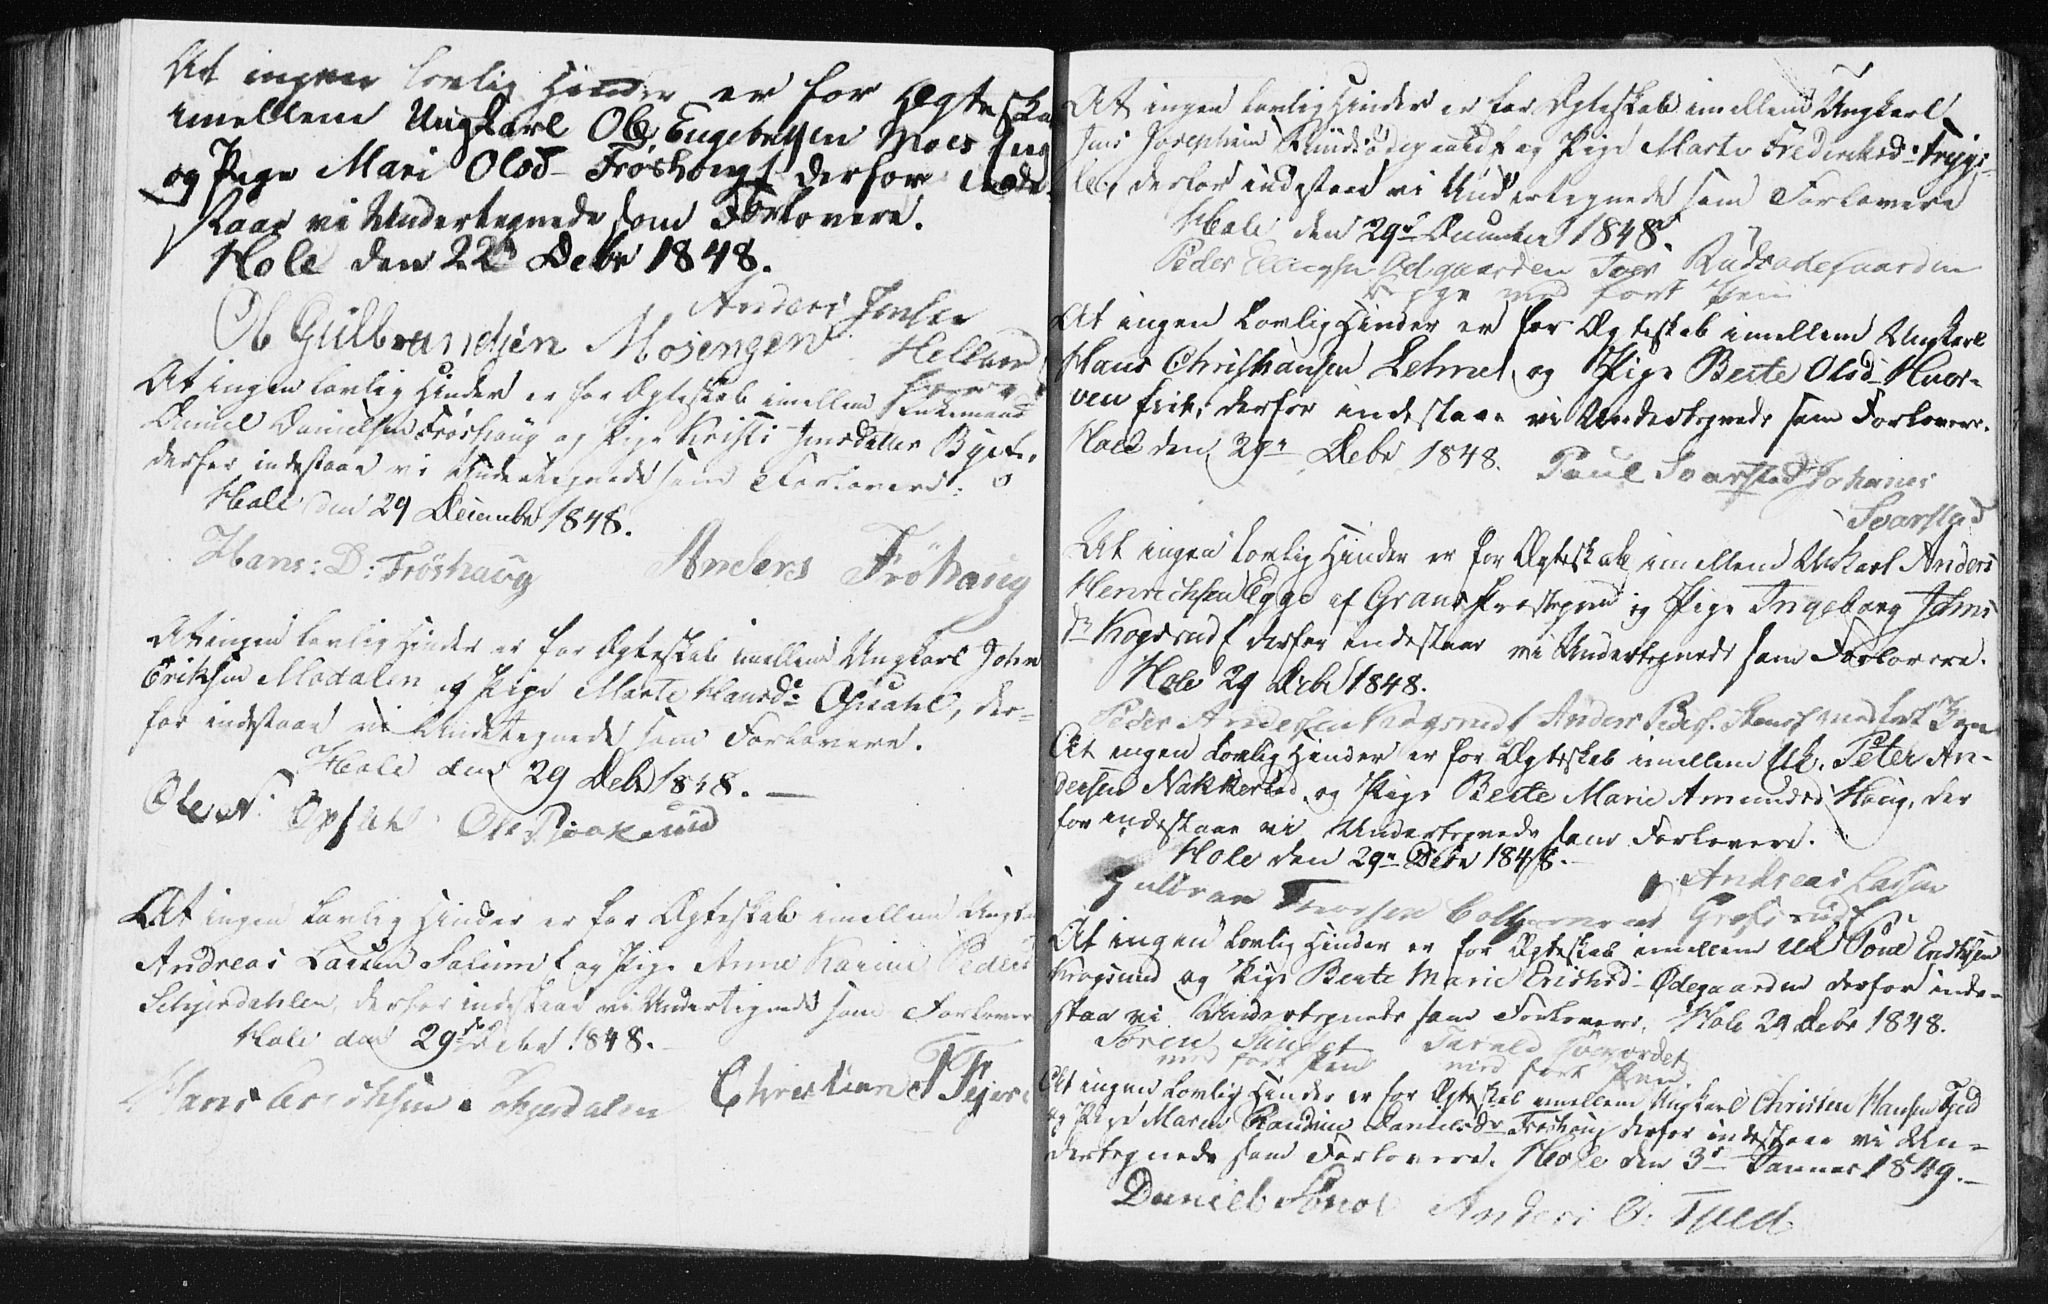 At ingen lovlig Hinder er for Ægteska
imellem Ungkarl Ole Engebretsen Moes
og Pige Mari Olsd Frøshoug derfor inde-
staae vi Undertegnede som Forlovere.
Hole den 22 Debr 1848.
Anders Jensen
Ole Gulbrandsen Mosengen Helland
At ingen lovlig Hinder er for Ægteskab imellem Enkemand
Daniel Danielsen Frøshaug og Pige Kristi Jensdatter
derfor indestaae vi Undertegnede som Forlovere.
Hole den 29 December 1848.
Hans: D: Frøshaug Anders Fröhaug
At ingen lovlig Hinder er for Ægteskab imellem Ungkarl John
Eriksen Modalen og Pige Marte Hansd Opsahl, der-
for indestaae vi Undertegnede som Forlovere.
Hole den 29 Debr 1848.
Ole N. Opsahl Ole
At ingen lovlig Hinder er for Ægteskab imellem
Andreas Larsen og Pige Anne Karine Peders
Schjerdahlen, derfor indestaae vi Undertegnede som Forlover
Hole den 29 Debr 1848.
Hans Erichsen Christian
At ingen lovlig Hinder er for Ægteskab imellem Ungkarl
Jens Josephsen og Pige Marte Frederiksd Trygs-
led, derfor indestaae vi Undertegnede som Forlovere
Hole den 29de December 1848.
Peder Iver
med ført Pen
At ingen Lovlig Hinder er for Ægteskab imellem Ungkarl
Hans Christiansen Lehne og Pige Berte Olsd Huer-
ven derfor indestaae vi Undertegnede som Forlovere.
Hole den 29de Debr 1848. Paul Svarstad Johanes
Svarstad
At ingen lovlig Hinder er for Ægteskab imellem Unkarl Anders
Henrichsen Egge af Grans Præstegjeld og Pige Ingeborg Johns
dr Krogsrud derfor indestaae vi Undertegnede som Forlovere.
Hole 29 Debr 1848.
Peder Andersen Krogsrud Anders med ført Pen
At ingen Lovlig Hinder er for Ægteskab imellem Uk. Peter An-
dersen Nakkerud og Pige Berte Marie Amundsd Haug, der
for indestaae vi Undertegnede som Forlovere.
Hole den 29de Debr 1848.
Andreas Larsen
At ingen lovlig Hinder er for Ægteskab imellem Uk Poul
Krogsrud og Pige Berte Marie Erichsd Ødegaarden derfor inde-
staa vi Undertegnede som Forlovere. Hole 29 Debr 1848.
Søren
med ført Pen med ført Pen.
At ingen Lovlig Hinder er for Ægteskab imellem Ungkarl Christen Hansen Fjeld
og Pige Maren Danielsdr Frøshoug derfor indestaae vi Un-
dertegnede som Forlovere. Hole den 3de Januar 1849.
Daniel Anders O: Fjeld